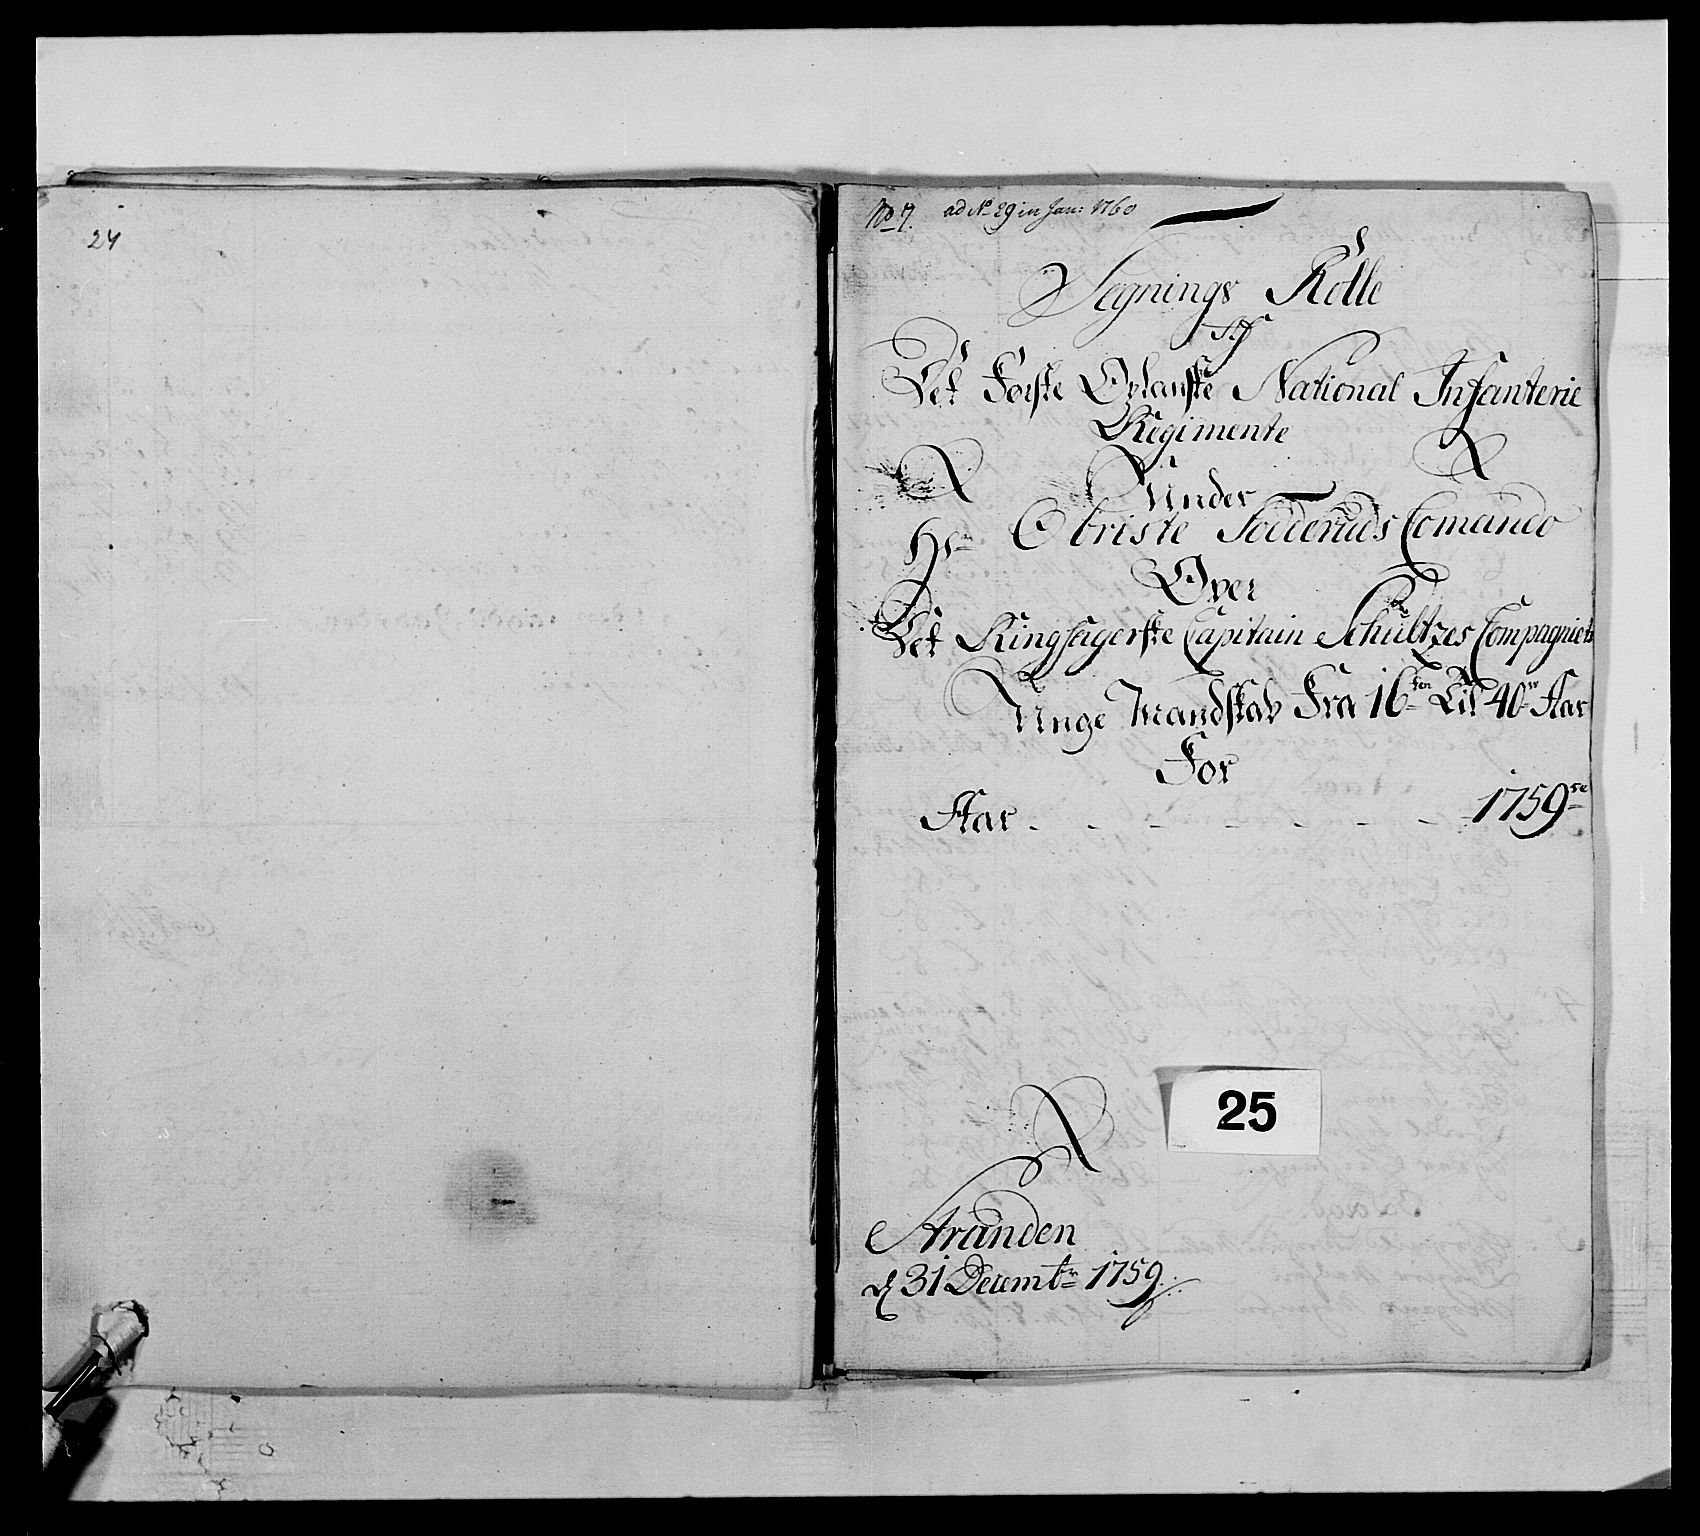 24
No 7. ad No 29 in Jan: 1760
Segnings Rolle
Af
Det Første Oplanske National Infanterie
Regimente
Under
Hr Obriste Comando
Over
Det Ringsagerske Capitain Schültzes Compagniets
Unge Mandskab Fra 16ten Til 40r Aar
For
Aar - - - - - - 1759de
25
Stranden
d 31 Decembr 1759.